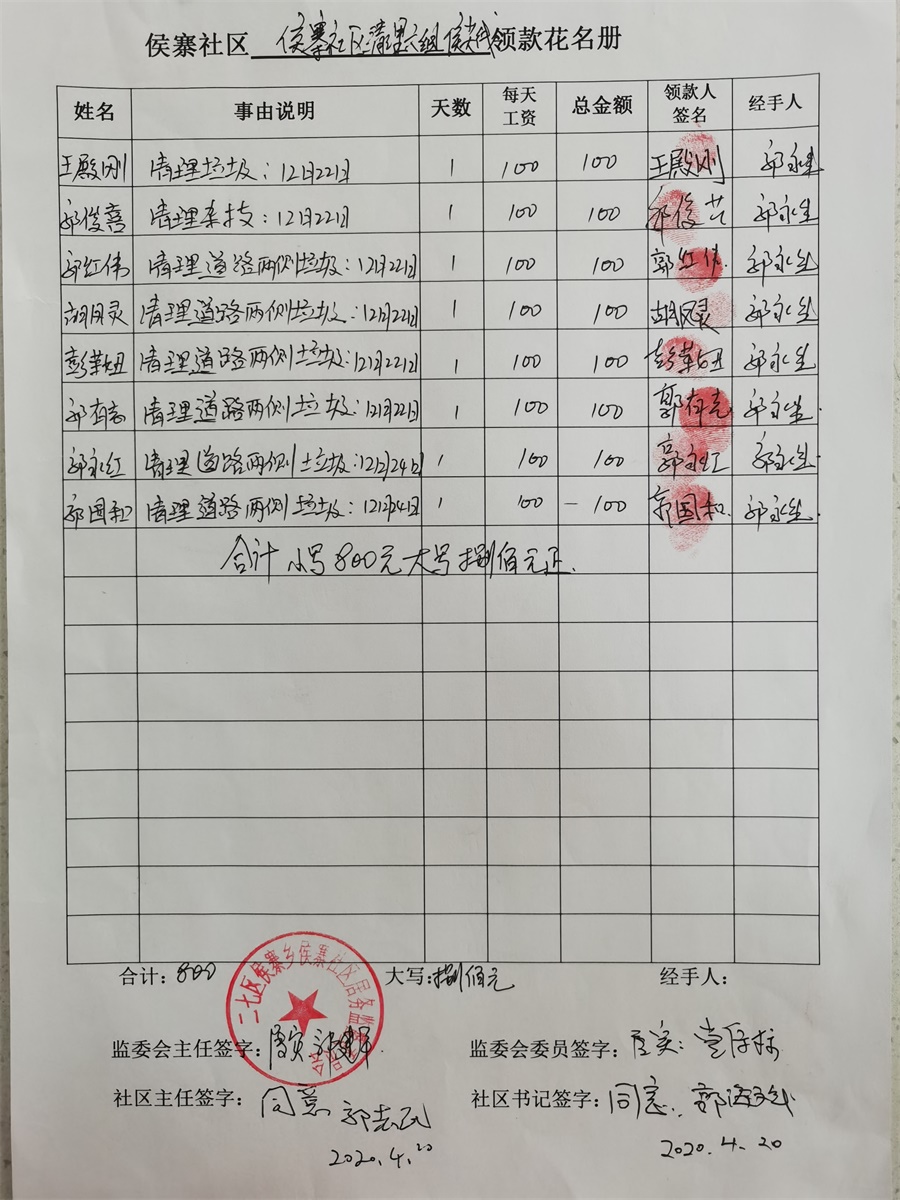 侯寨社区 侯寨社区清理六组 领款花名册
姓名 事由说明 天数 每天工资 总金额 领款人签名 经手人
王殿刚 清理垃圾：12月22日 1 100 100 王殿刚 郭永生
郭俊喜 清理杂技：12月22日 1 100 100 郭俊 郭永生
郭红伟 清理道路两侧垃圾：12月22日 1 100 100 郭红伟 郭永生
胡风灵 清理道路两侧垃圾：12月22日 1 100 100 胡风灵 郭永生
彭苹妞 清理道路两侧垃圾：12月22日 1 100 100 彭苹妞 郭永生
郭有亮 清理道路两侧垃圾：12月22日 1 100 100 郭有亮 郭永生
郭永红 清理道路两侧垃圾：12月24日 1 100 100 郭永红 郭永生
郭国和 清理道路两侧垃圾：12月24日 1 100 100 郭国和 郭永生
合计 小写 800元 大写 捌佰元正.
合计：800 大写：捌佰元 经手人：
二七区侯寨乡侯寨社区居务监督委员会
监委会主任签字： 监委会委员签字：
社区主任签字：同意 郭志民 社区书记签字：同意
2020.4.20 2020.4.20